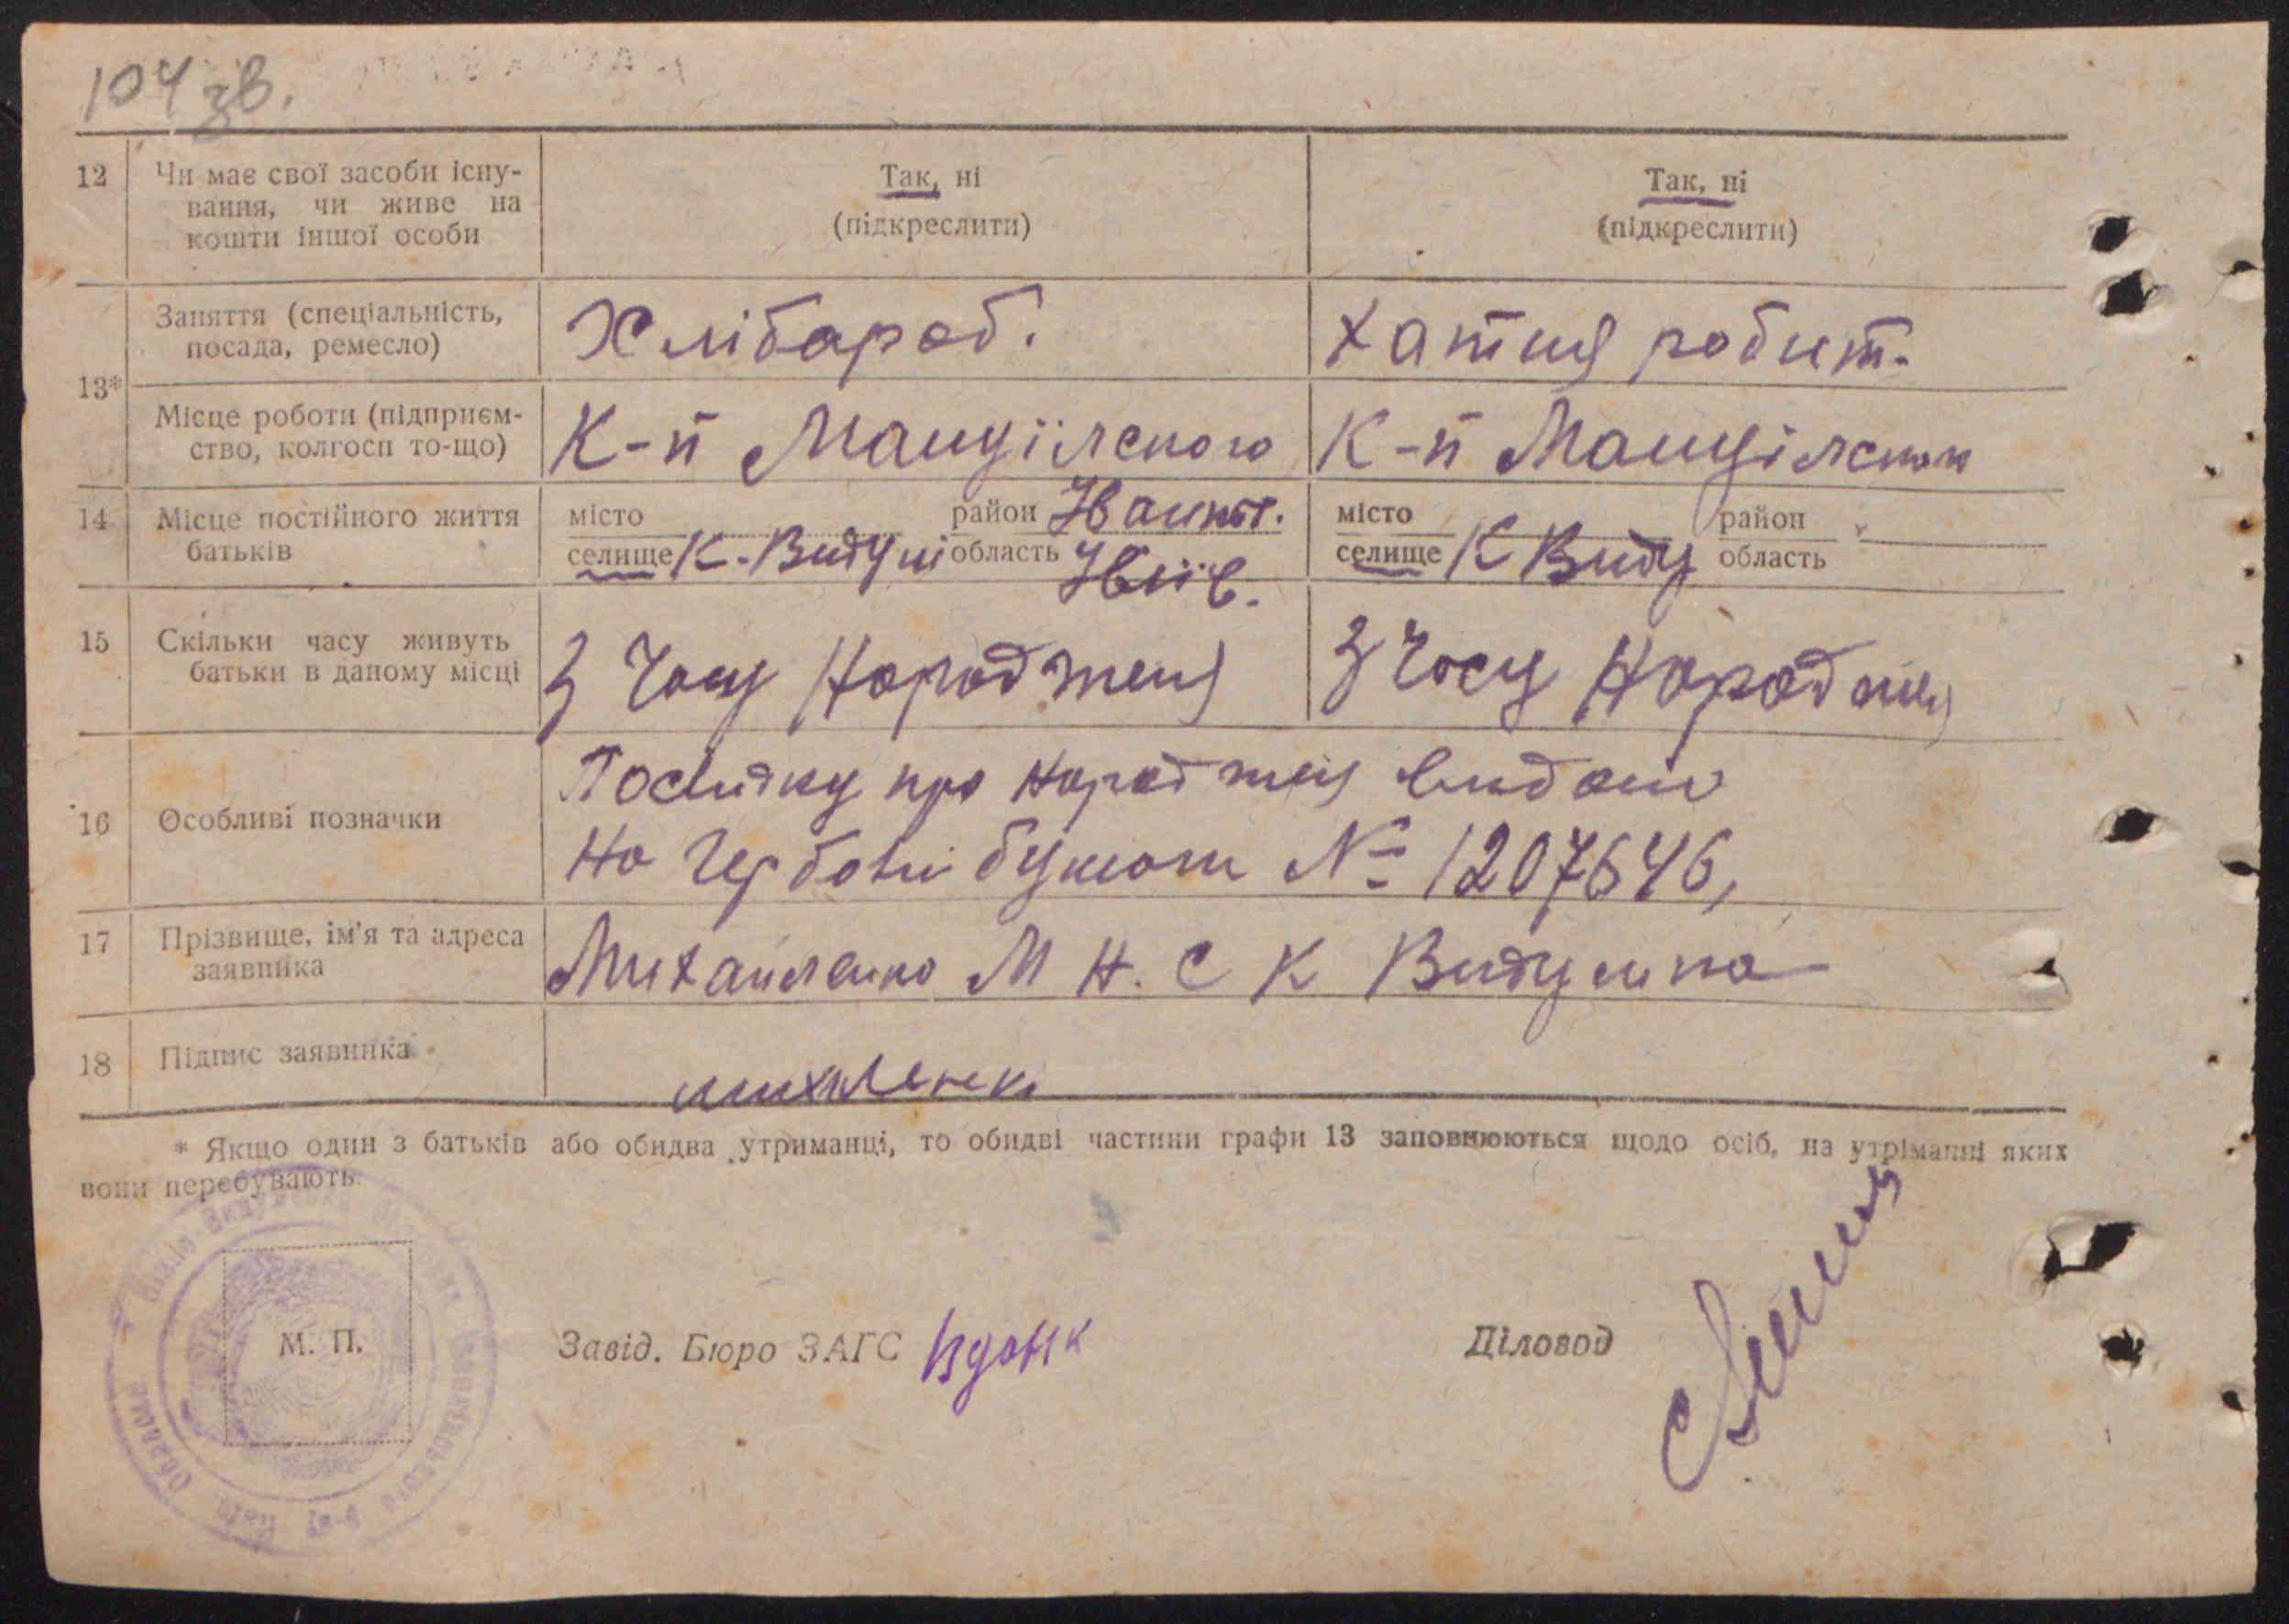 104 зв.
12 Чи має свої засоби існу-
вання, чи живе на
кошти іншої особи
Так, ні
(підкреслити)
Так, ні
(підкреслити)
13*
Заняття (спеціальність,
посада, ремесло)
Хлібороб.
Хатня робит.
Місце роботи (підприєм-
ство, колгосп то-що)
К-п
К-п
14 Місце постійного життя
батьків
місто
селище К-Видум
район
область
місто
селище К Виду
район
область
15 Скільки часу живуть
батьки в даному місці
З Часу Народженя
З Часу
16 Особливі позначки
про видано
На № 1207646,
17 Прізвище, ім'я та адреса
заявника
Михайленко М Н. С К Видумка
18 Підпис заявника
* Якщо один з батьків або обидва утриманці, то обидві частини графи 13 заповнюються щодо осіб, на утріманні яких
вони перебувають.
М. П.
Завід. Бюро ЗАГС
Діловод